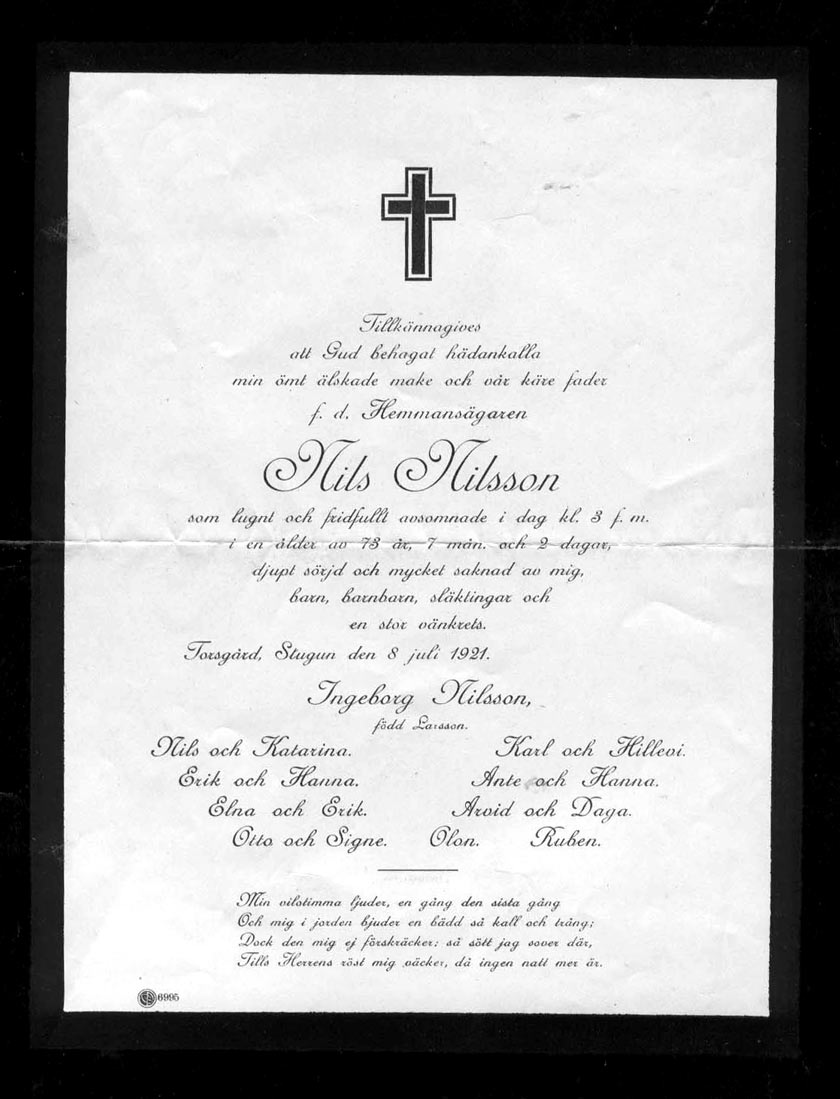 Tillkännagives
att Gud behagat hädankalla
min ömt älskade make och vår käre fader
f. d. Hemmansägaren
Nils Nilsson
som lugnt och fridfullt avsomnade i dag kl. 3 f. m.
i en ålder av 73 år, 7 mån. och 2 dagar,
djupt sörjd och mycket saknad av mig,
barn, barnbarn, släktingar och
en stor vänkrets.
Torsgård, Stugun den 8 juli 1921.
Ingeborg Nilsson,
född Larsson.
Nils och Katarina. Karl och Hillevi.
Erik och Hanna. Ante och Hanna.
Elna och Erik. Arvid och Daga.
Otto och Signe. Olon. Ruben.
Min vilotimma ljuder, en gång den sista gång
Och mig i jorden bjuder en bädd så kall och trång;
Dock den mig ej förskräcker: så sött jag sover där,
Tills Herrens röst mig väcker, då ingen natt mer är.
6995